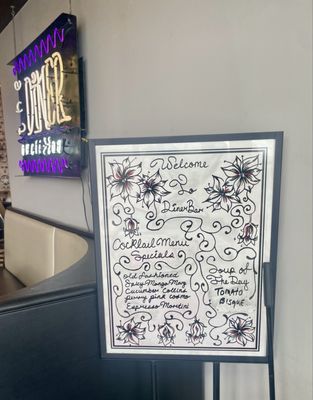 DINER
Welcome
To
DinerBar
Cocktail Menu
Specials
old fashioned
Spicy Mango Marg
Cucumber Collins
penny pink cosmo
Espresso Martini
Soup of
The Day
TOMATO
BISQUE